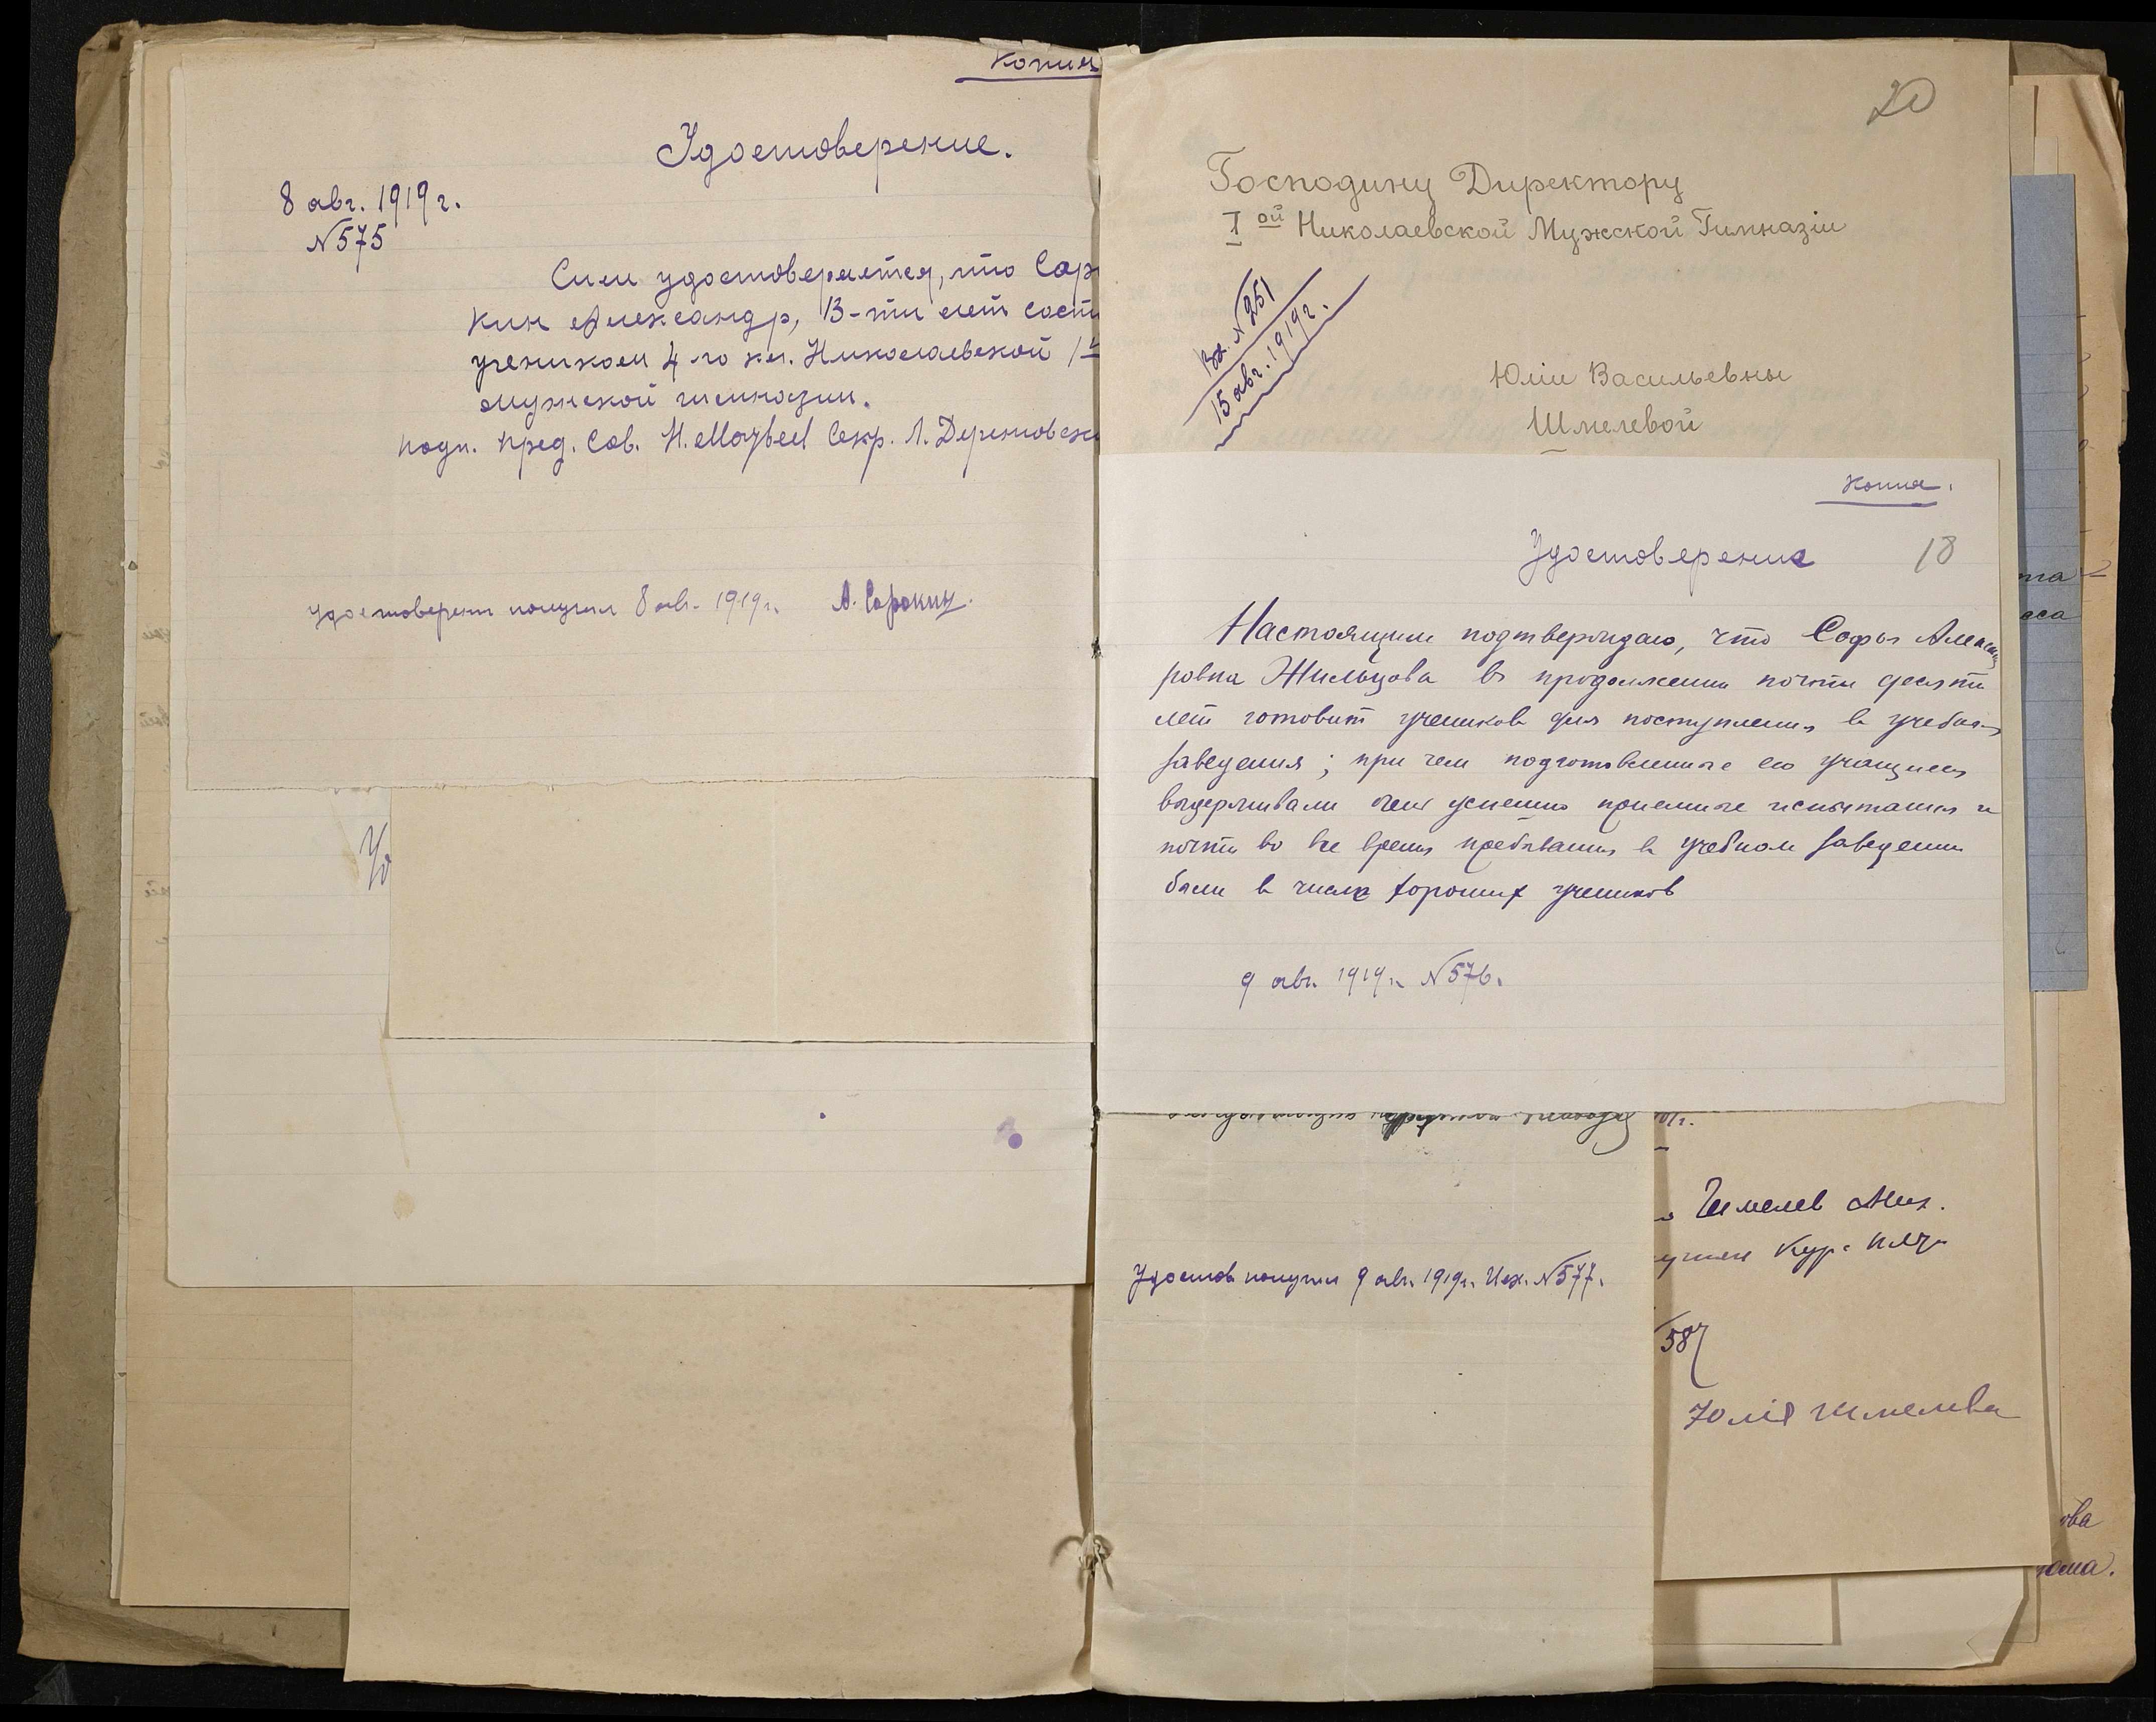 Копия
Удостоверение.
8 авг. 1919 г.
№ 575
Сим удостоверяется, что Сор
кин Александр, 13-ти лет сост
учеником 4-го кл. Николаевской 1
мужской гимназии.
подп. Пред. Сов. Секр. Л.
Удостоверен получил 8 авг. 1919 г. А. Сорокин.
Уд
20
Господину Директору
I ой Николаевской Мужской Гимназіи
Вх. № 251
15 авг. 1919 г.
Юліи Васильевны
Шмелевой
Копия.
Удостоверение
18
Настоящим подтверждаю, что Софья Алексан
ровна Жильцова в продолжении почти десяти
лет готовит учеников для поступления в учебн
заведения; при чем подготовленные ею учащиеся
выдерживали очень успешно приемные испытания и
почти во все время пребывания в учебном заведении
были в числе хороших учеников
9 авг. 1919 г. № 576.
Шмелев Мих.
Удостов получил 9 авг. 1919 г. Исх. № 577.
587
Юлія Шмелева
та
аса
ова